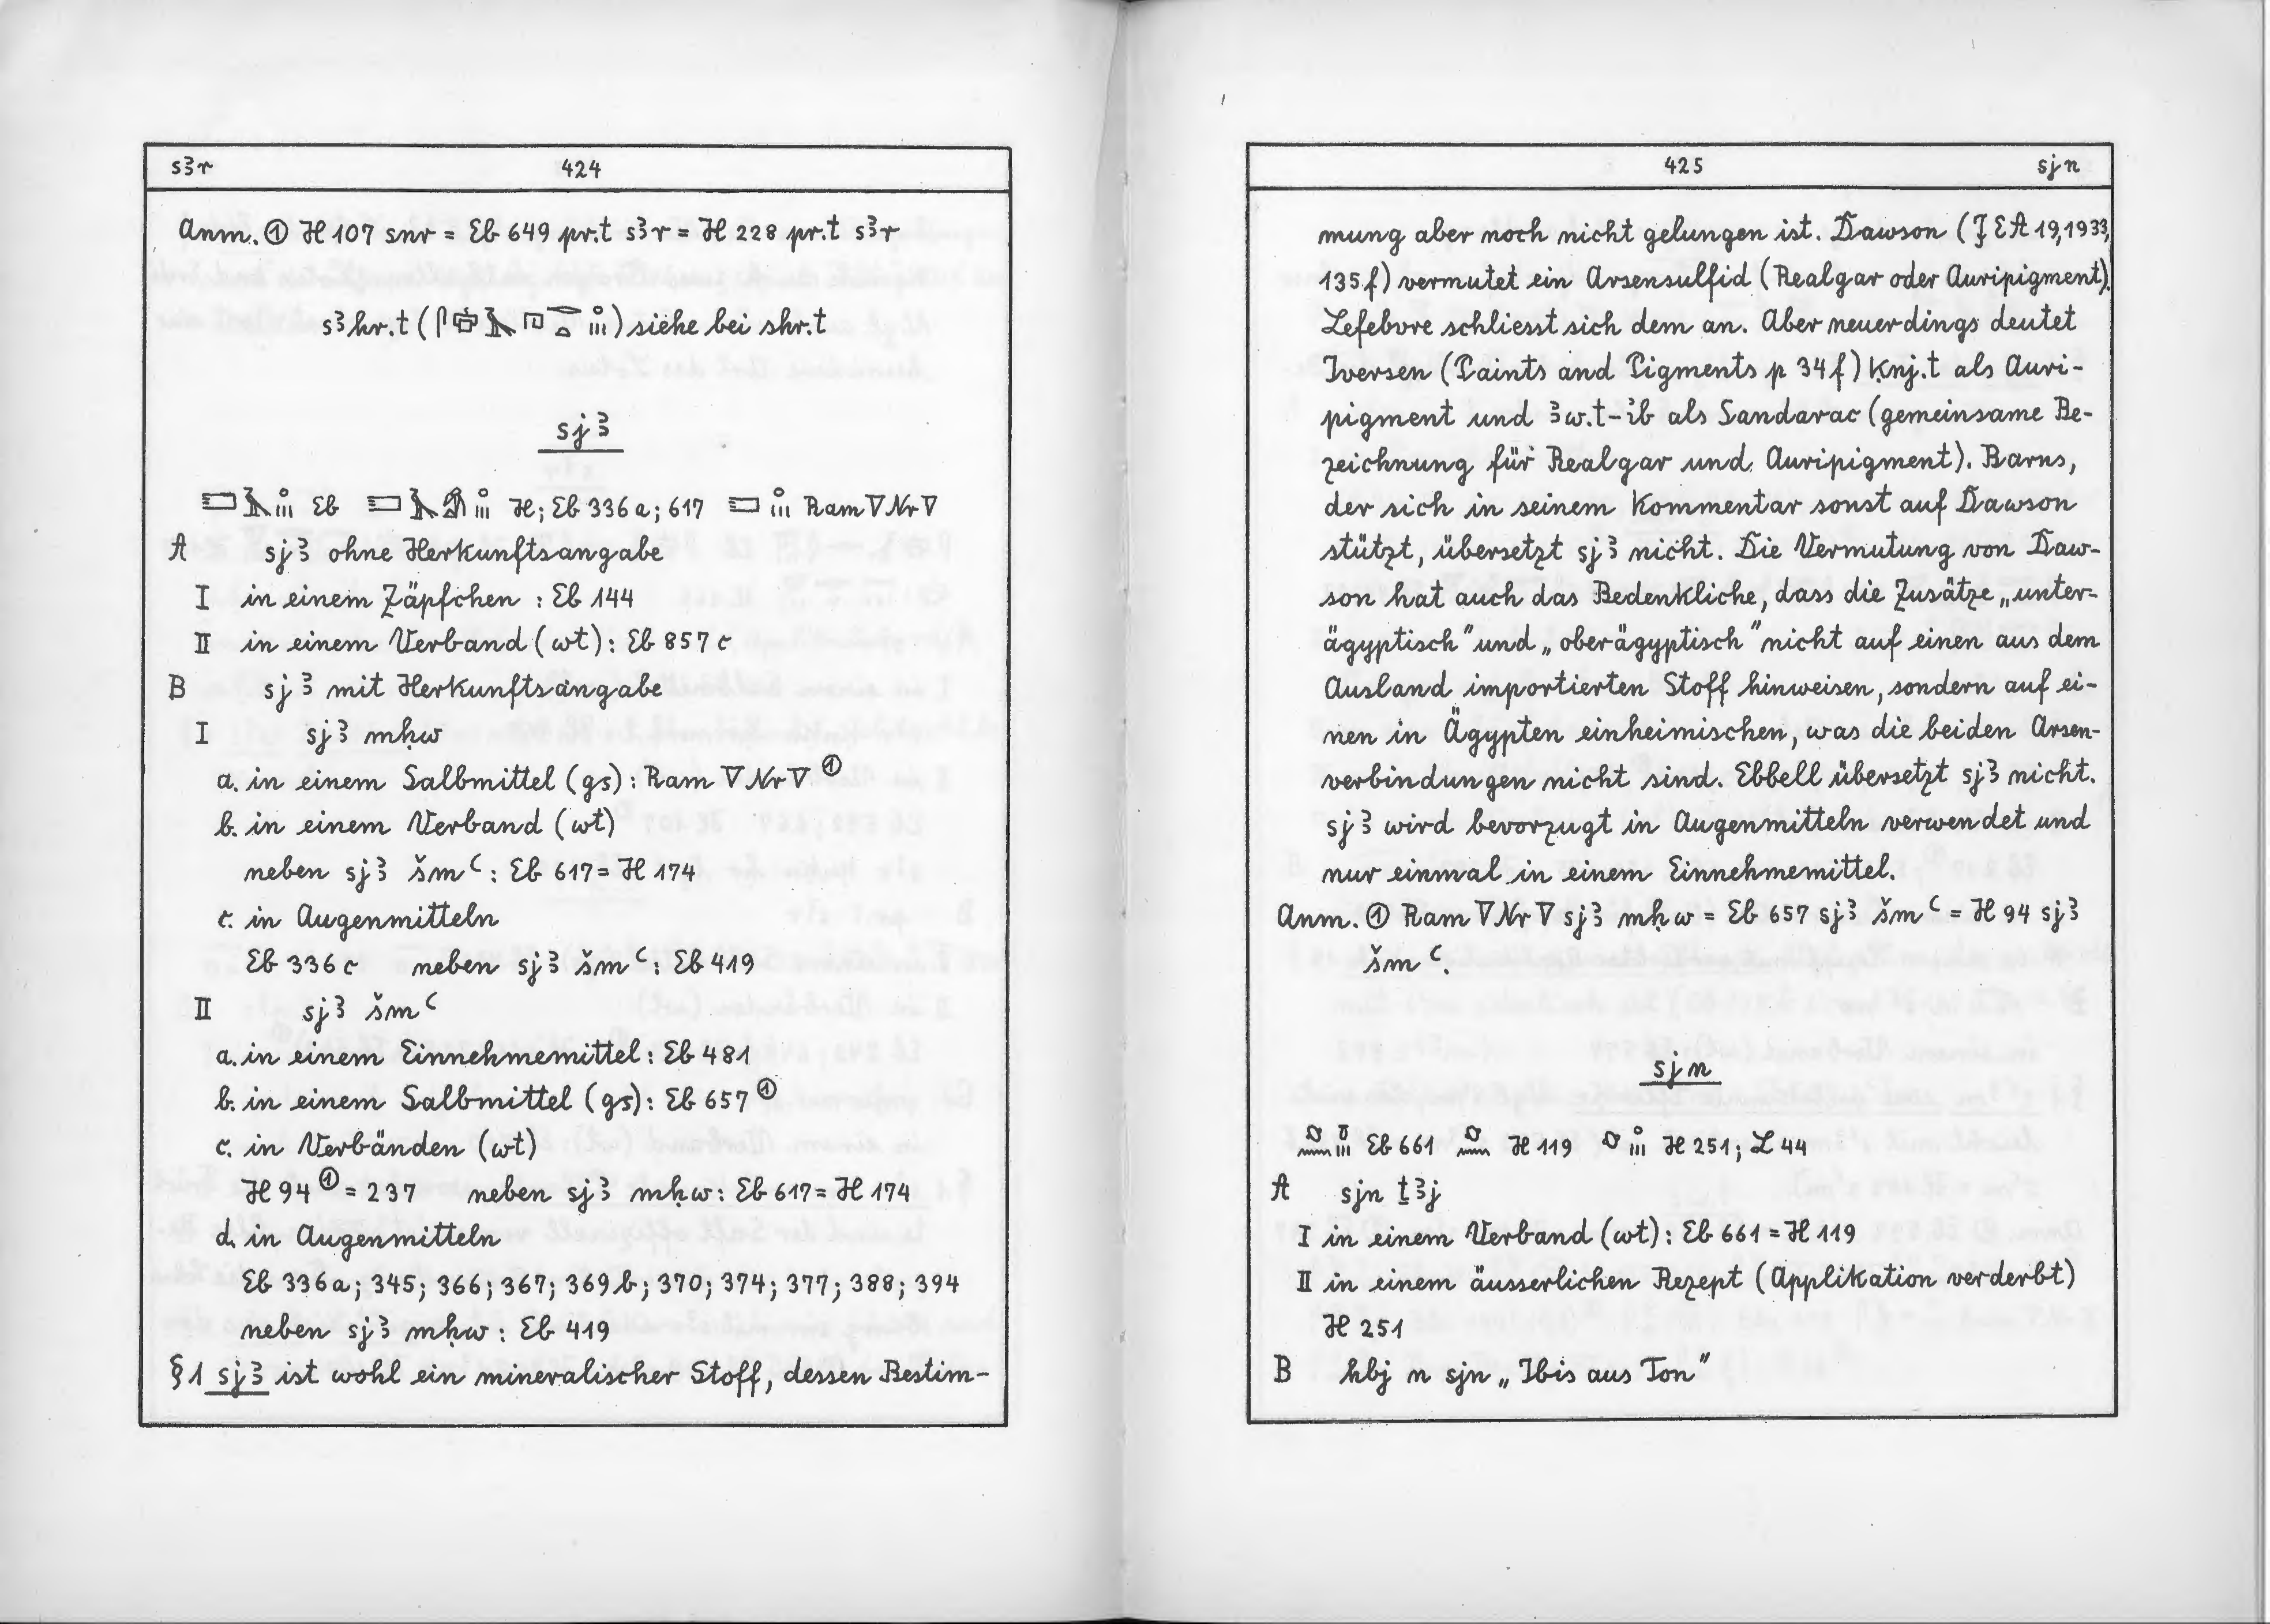 sꜣr 424
Anm. ① H 107 snr = Eb 649 pr.t sꜣr = H 228 pr.t sꜣr
sꜣhr.t ( ) siehe bei shr.t
sjꜣ
Eb H; Eb 336a; 617 Ram V Nr V
A sjꜣ ohne Herkunftsangabe
I in einem Zäpfchen : Eb 144
II in einem Verband (wt): Eb 857c
B sjꜣ mit Herkunftsangabe
I sjꜣ mḥw
a. in einem Salbmittel (gs): Ram V Nr V ①
b. in einem Verband (wt)
neben sjꜣ šmꜥ: Eb 617 = H 174
c. in Augenmitteln
Eb 336c neben sjꜣ šmꜥ: Eb 419
II sjꜣ šmꜥ
a. in einem Einnehmemittel: Eb 481
b. in einem Salbmittel (gs): Eb 657 ①
c. in Verbänden (wt)
H 94 ① = 237 neben sjꜣ mḥw: Eb 617 = H 174
d. in Augenmitteln
Eb 336a; 345; 366; 367; 369b; 370; 374; 377; 388; 394
neben sjꜣ mḥw: Eb 419
§1 sjꜣ ist wohl ein mineralischer Stoff, dessen Bestim-
425 sjn
mung aber noch nicht gelungen ist. Dawson (JEA 19, 1933,
135f) vermutet ein Arsensulfid (Realgar oder Auripigment).
Lefebvre schliesst sich dem an. Aber neuerdings deutet
Iversen (Paints and Pigments p 34f) ḳnj.t als Auri-
pigment und ꜣw.t-ib als Sandarac (gemeinsame Be-
zeichnung für Realgar und Auripigment). Barns,
der sich in seinem Kommentar sonst auf Dawson
stützt, übersetzt sjꜣ nicht. Die Vermutung von Daw-
son hat auch das Bedenkliche, dass die Zusätze „unter-
ägyptisch" und „oberägyptisch" nicht auf einen aus dem
Ausland importierten Stoff hinweisen, sondern auf ei-
nen in Ägypten einheimischen, was die beiden Arsen-
verbindungen nicht sind. Ebbell übersetzt sjꜣ nicht.
sjꜣ wird bevorzugt in Augenmitteln verwendet und
nur einmal in einem Einnehmemittel.
Anm. ① Ram V Nr V sjꜣ mḥw = Eb 657 sjꜣ šmꜥ = H 94 sjꜣ
šmꜥ.
sjn
Eb 661 H 119 H 251; L 44
A sjn ṯꜣj
I in einem Verband (wt): Eb 661 = H 119
II in einem äusserlichen Rezept (Applikation verderbt)
H 251
B hbj n sjn „Ibis aus Ton"